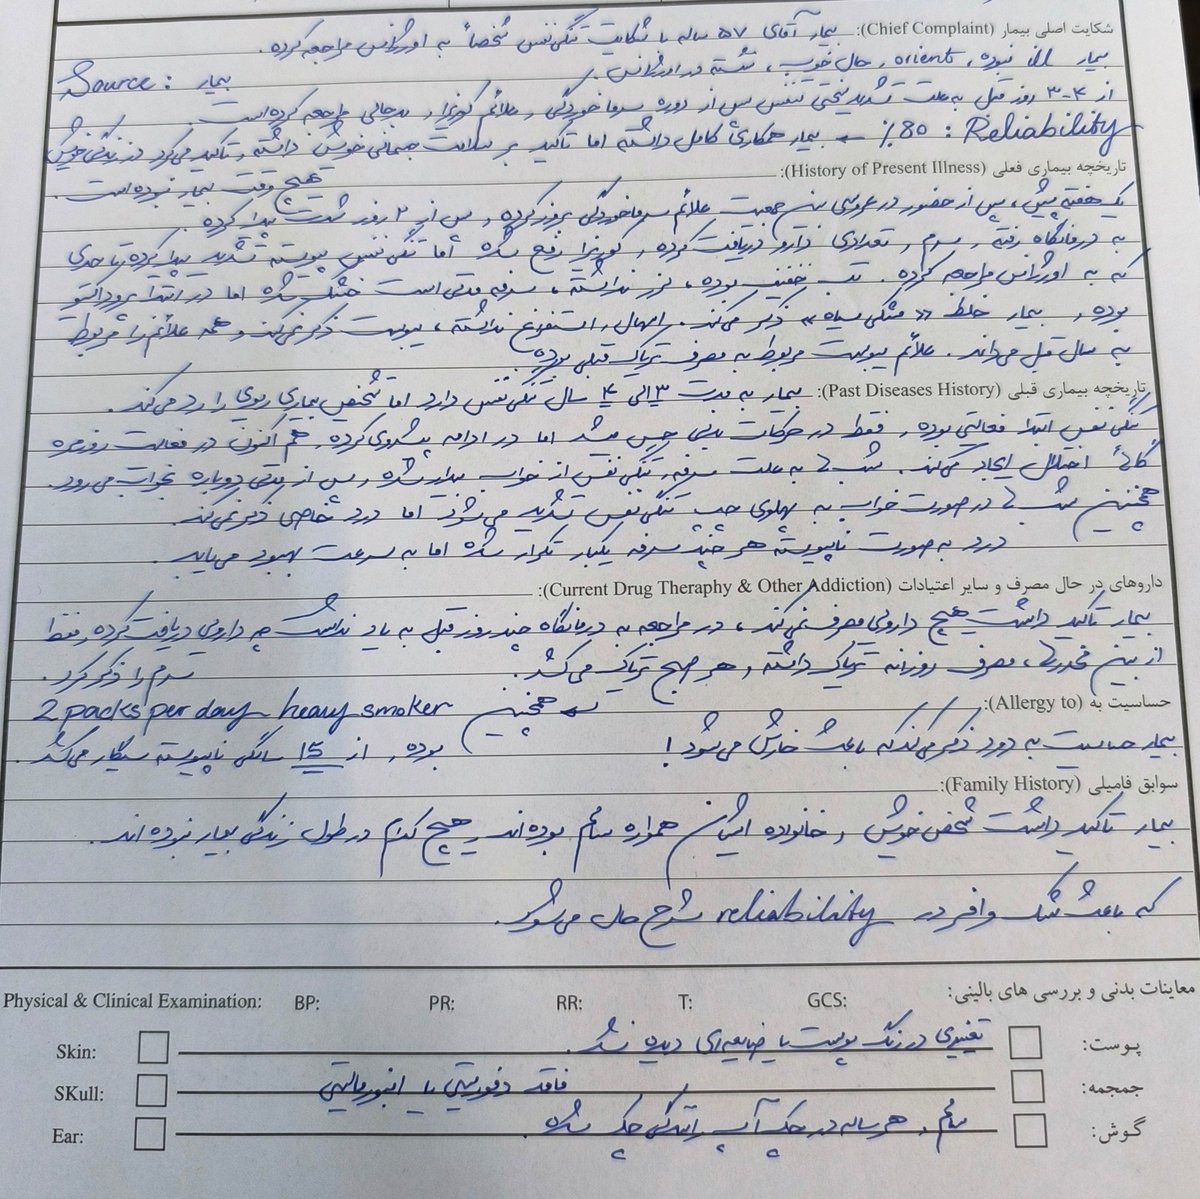 شکایت اصلی بیمار (Chief Complaint): بیمار آقای ۵۷ ساله با شکایت تنگی نفس شخصاً به اورژانس مراجعه کرده.
بیمار ill نبوده، orient، حال خوب، نشسته در اورژانس.
Source: بیمار
از ۴-۳ روز قبل به علت تشدید سختی تنفس پس از دوره سرماخوردگی، علائم کوریزا، بدحالی مراجعه کرده است.
Reliability: ۸۰٪ ← بیمار همکاری کامل داشته اما تأکید بر سلامت جسمانی خویش داشته و تأکید می‌کرد در زندگی خویش
هیچ وقت بیمار نبوده است.
تاریخچه بیماری فعلی (History of Present Illness):
یک هفته پیش، پس از حضور در عروسی بین جمعیت علائم سرماخوردگی بروز کرده و پس از ۲ روز شدت پیدا کرده.
به درمانگاه رفته و سرم و تعدادی دارو دریافت کرده و کوریزا رفع شده اما تنگی نفس پیوسته تشدید پیدا کرده تا حدی
که به اورژانس مراجعه کرده. تب خفیف بوده، لرز نداشته، سرفه مدتی است خشک شده اما در ابتدا پروداکتیو
بوده و بیمار خلط «مشکی سیاه» ذکر می‌کند. اسهال و استفراغ نداشته، یبوست ذکر نمی‌کند و همه علائم را مربوط
به سال قبل می‌داند. علائم یبوست مربوط به مصرف تریاک قبلی بوده
تاریخچه بیماری قبلی (Past Diseases History): بیمار به مدت ۳ الی ۴ سال تنگی نفس دارد اما تشخیص بیماری ریوی را رد می‌کند.
تنگی نفس ابتدا فعالیتی بوده و فقط در حرکات بدنی حس میشد اما در ادامه پیشروی کرده و هم اکنون در فعالیت روزمره
گاهاً اختلال ایجاد می‌کند. شب ها به علت سرفه و تنگی نفس از خواب بیدار شده و پس از مدتی دوباره بخواب می‌رود.
همچنین شب ها در صورت خواب به پهلوی چپ تنگی نفس تشدید می‌شود اما درد خاصی ذکر نمی‌کند.
درد به صورت ناپیوسته هر چند سرفه یکبار تکرار شده اما به سرعت بهبود می‌یابد.
داروهای در حال مصرف و سایر اعتیادات (Current Drug Theraphy & Other Addiction):
بیمار تأکید داشت هیچ داروی مصرف نمی‌کند، در مراجعه به درمانگاه چند روز قبل به یاد نداشت چه داروی دریافت کرده و فقط
سرم را ذکر کرد.
از بین مخدرها، مصرف روزانه تریاک داشته و هر صبح تریاک می‌کشد.
حساسیت به (Allergy to): ← همچنین 2 packs per day heavy smoker
بیمار حساسیت به دود ذکر می‌کند که باعث خارش می‌شود! بوده و از ۱۵ سالگی ناپیوسته سیگار می‌کشد.
سوابق فامیلی (Family History):
بیمار تأکید داشت شخص خویش و خانواده ایشان همواره سالم بوده‌اند و هیچ کدام در طول زندگی بیمار نبوده‌اند.
که باعث شک وافر در reliability شرح حال می‌شود.
معاینات بدنی و بررسی های بالینی: Physical & Clinical Examination: BP: PR: RR: T: GCS:
پوست: تغییری در رنگ پوست یا ضایعه‌ای دیده نشد. Skin:
جمجمه: فاقد دفورمیتی یا ابنورمالیتی SKull:
گوش: سالم و هر ساله در چک آپ رانندگی چک شده. Ear: